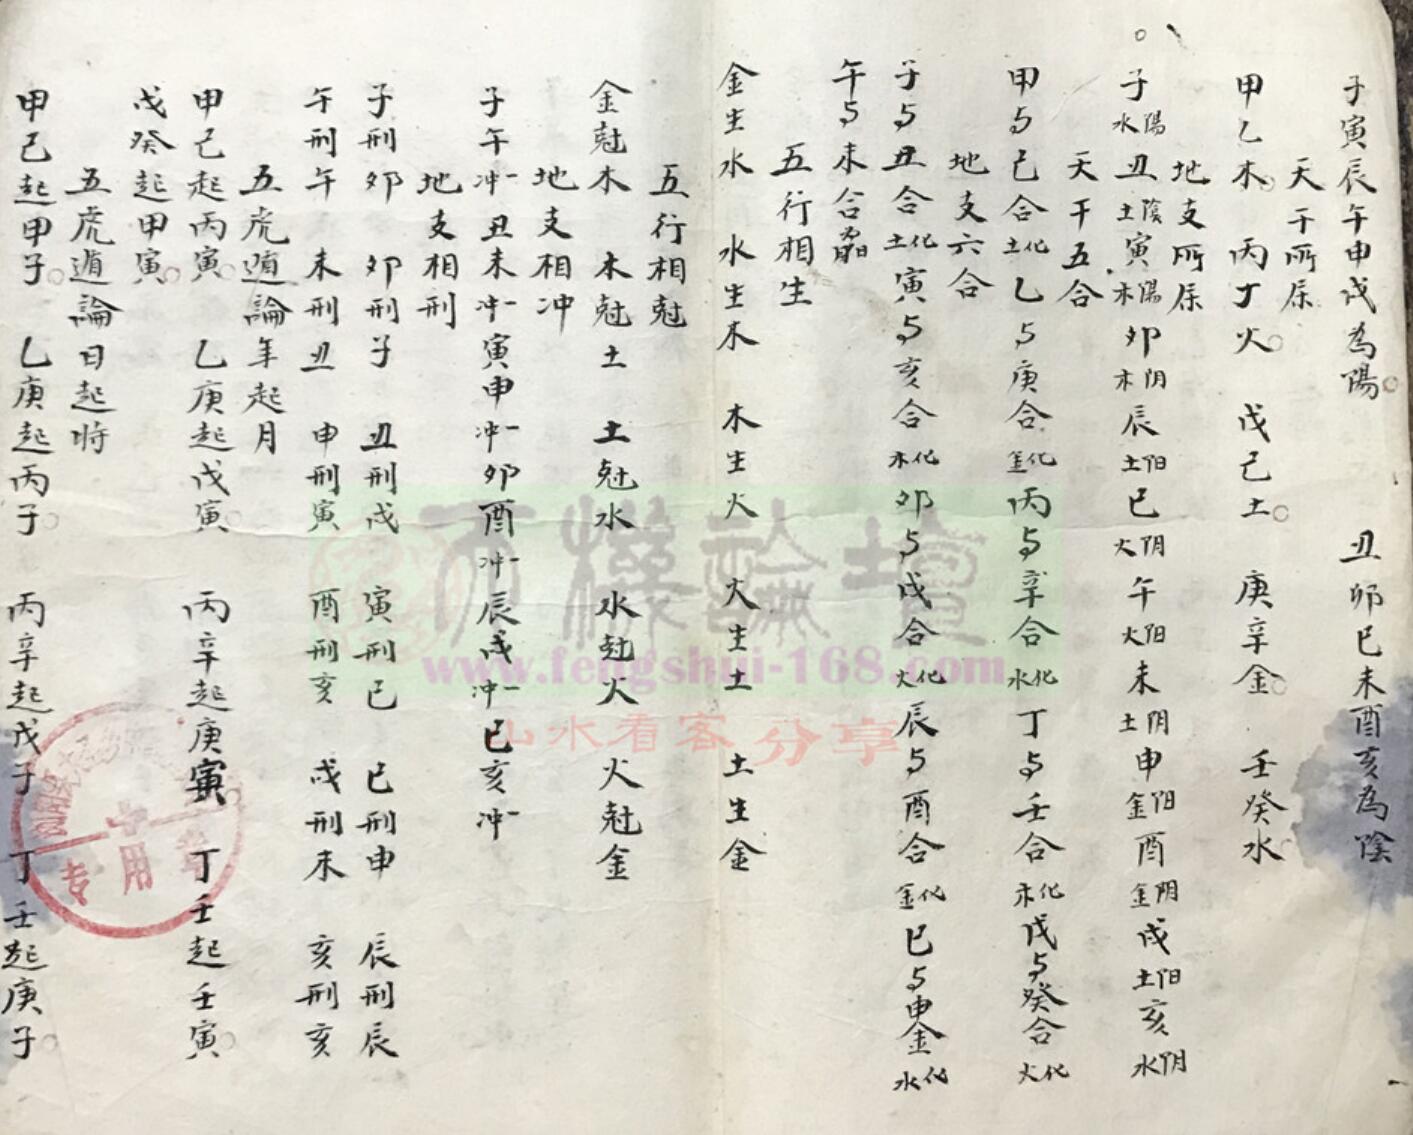 子寅辰午申戌為陽 丑卯巳未酉亥為陰
天干所属
甲乙木 丙丁火 戊己土 庚辛金 壬癸水
地支所属
子水陽 丑土陰 寅木陽 卯木阴 辰土阳 巳火阴 午火阳 未土阴 申金阳 酉金阴 戌土阳 亥水阴
天干五合
甲与己合化土 乙与庚合化金 丙与辛合化水 丁与壬合化木 戊与癸合化火
地支六合
子与丑合化土 寅与亥合化木 卯与戌合化火 辰与酉合化金 巳与申金化水
午与未合
五行相生
金生水 水生木 木生火 火生土 土生金
五行相尅
金尅木 木尅土 土尅水 水尅火 火尅金
地支相冲
子午一冲 丑未一冲 寅申一冲 卯酉一冲 辰戌一冲 巳亥一冲
地支相刑
子刑卯 卯刑子 丑刑戌 寅刑巳 巳刑申 辰刑辰
午刑午 未刑丑 申刑寅 酉刑亥 戌刑未 亥刑亥
五虎遁論年起月
甲己起丙寅 乙庚起戊寅 丙辛起庚寅 丁壬起壬寅
戊癸起甲寅
五虎遁論日起時
甲己起甲子 乙庚起丙子 丙辛起戊子 丁壬起庚子
天機論壇
www.fengshui-168.com
山水看客 分享
专用章